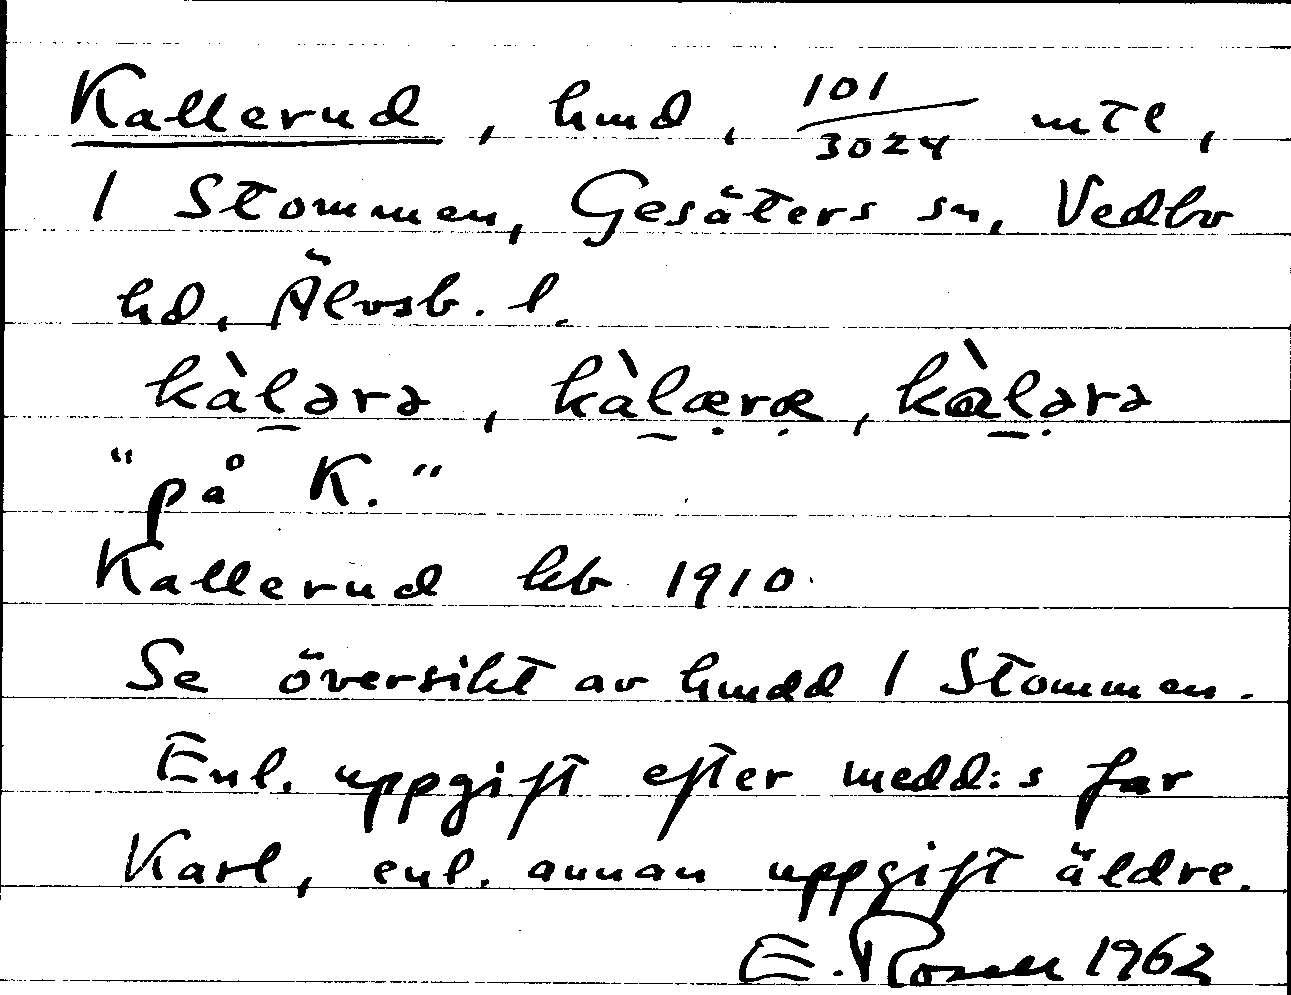 Kallerud, hmd, 101/3024 mtl,
1 Stommen, Gesäters sn, Vedbo
hd, Älvsb. l.
kàl̠ərə, kàl̠æ̣ræ̣, kàl̠ə̣rə
"på K."
Kallerud kb 1910
Se översikt av hmdd 1 Stommen.
Enl. uppgift efter medd:s far
Karl, enl. annan uppgift äldre.
E. Rosell 1962